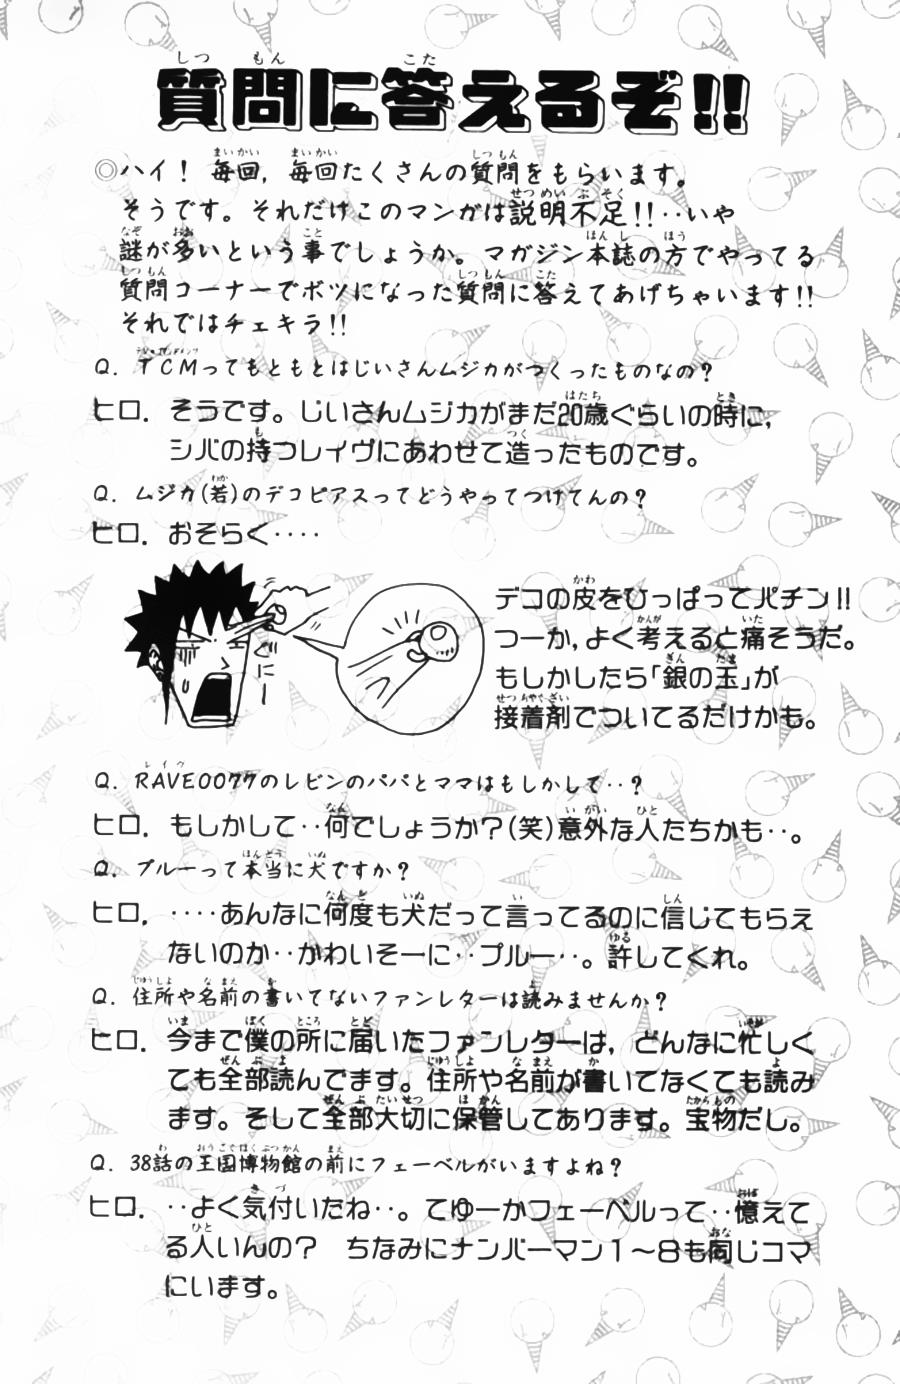 質問に答えるぞ!!
◎ハイ! 毎回,毎回たくさんの質問をもらいます。
そうです。それだけこのマンガは説明不足!!‥いや
謎が多いという事でしょうか。マガジン本誌の方でやってる
質問コーナーでボツになった質問に答えてあげちゃいます!!
それではチェキラ!!
Q. TCMってもともとはじいさんムジカがつくったものなの?
ヒロ. そうです。じいさんムジカがまだ20歳ぐらいの時に,
シバの持つレイヴにあわせて造ったものです。
Q. ムジカ(若)のデコピアスってどうやってつけてんの?
ヒロ. おそらく‥‥
ぐにー
デコの皮をひっぱってパチン!!
つーか,よく考えると痛そうだ。
もしかしたら「銀の玉」が
接着剤でついてるだけかも。
Q. RAVE0077のレビンのパパとママはもしかして‥?
ヒロ. もしかして‥何でしょうか?(笑)意外な人たちかも‥。
Q. プルーって本当に犬ですか?
ヒロ. ‥‥あんなに何度も犬だって言ってるのに信じてもらえ
ないのか‥かわいそーに‥プルー‥。許してくれ。
Q. 住所や名前の書いてないファンレターは読みませんか?
ヒロ. 今まで僕の所に届いたファンレターは,どんなに忙しく
ても全部読んでます。住所や名前が書いてなくても読み
ます。そして全部大切に保管してあります。宝物だし。
Q. 38話の王国博物館の前にフェーベルがいますよね?
ヒロ. ‥よく気付いたね‥。てゆーかフェーベルって‥憶えて
る人いんの? ちなみにナンバーマン1〜8も同じコマ
にいます。